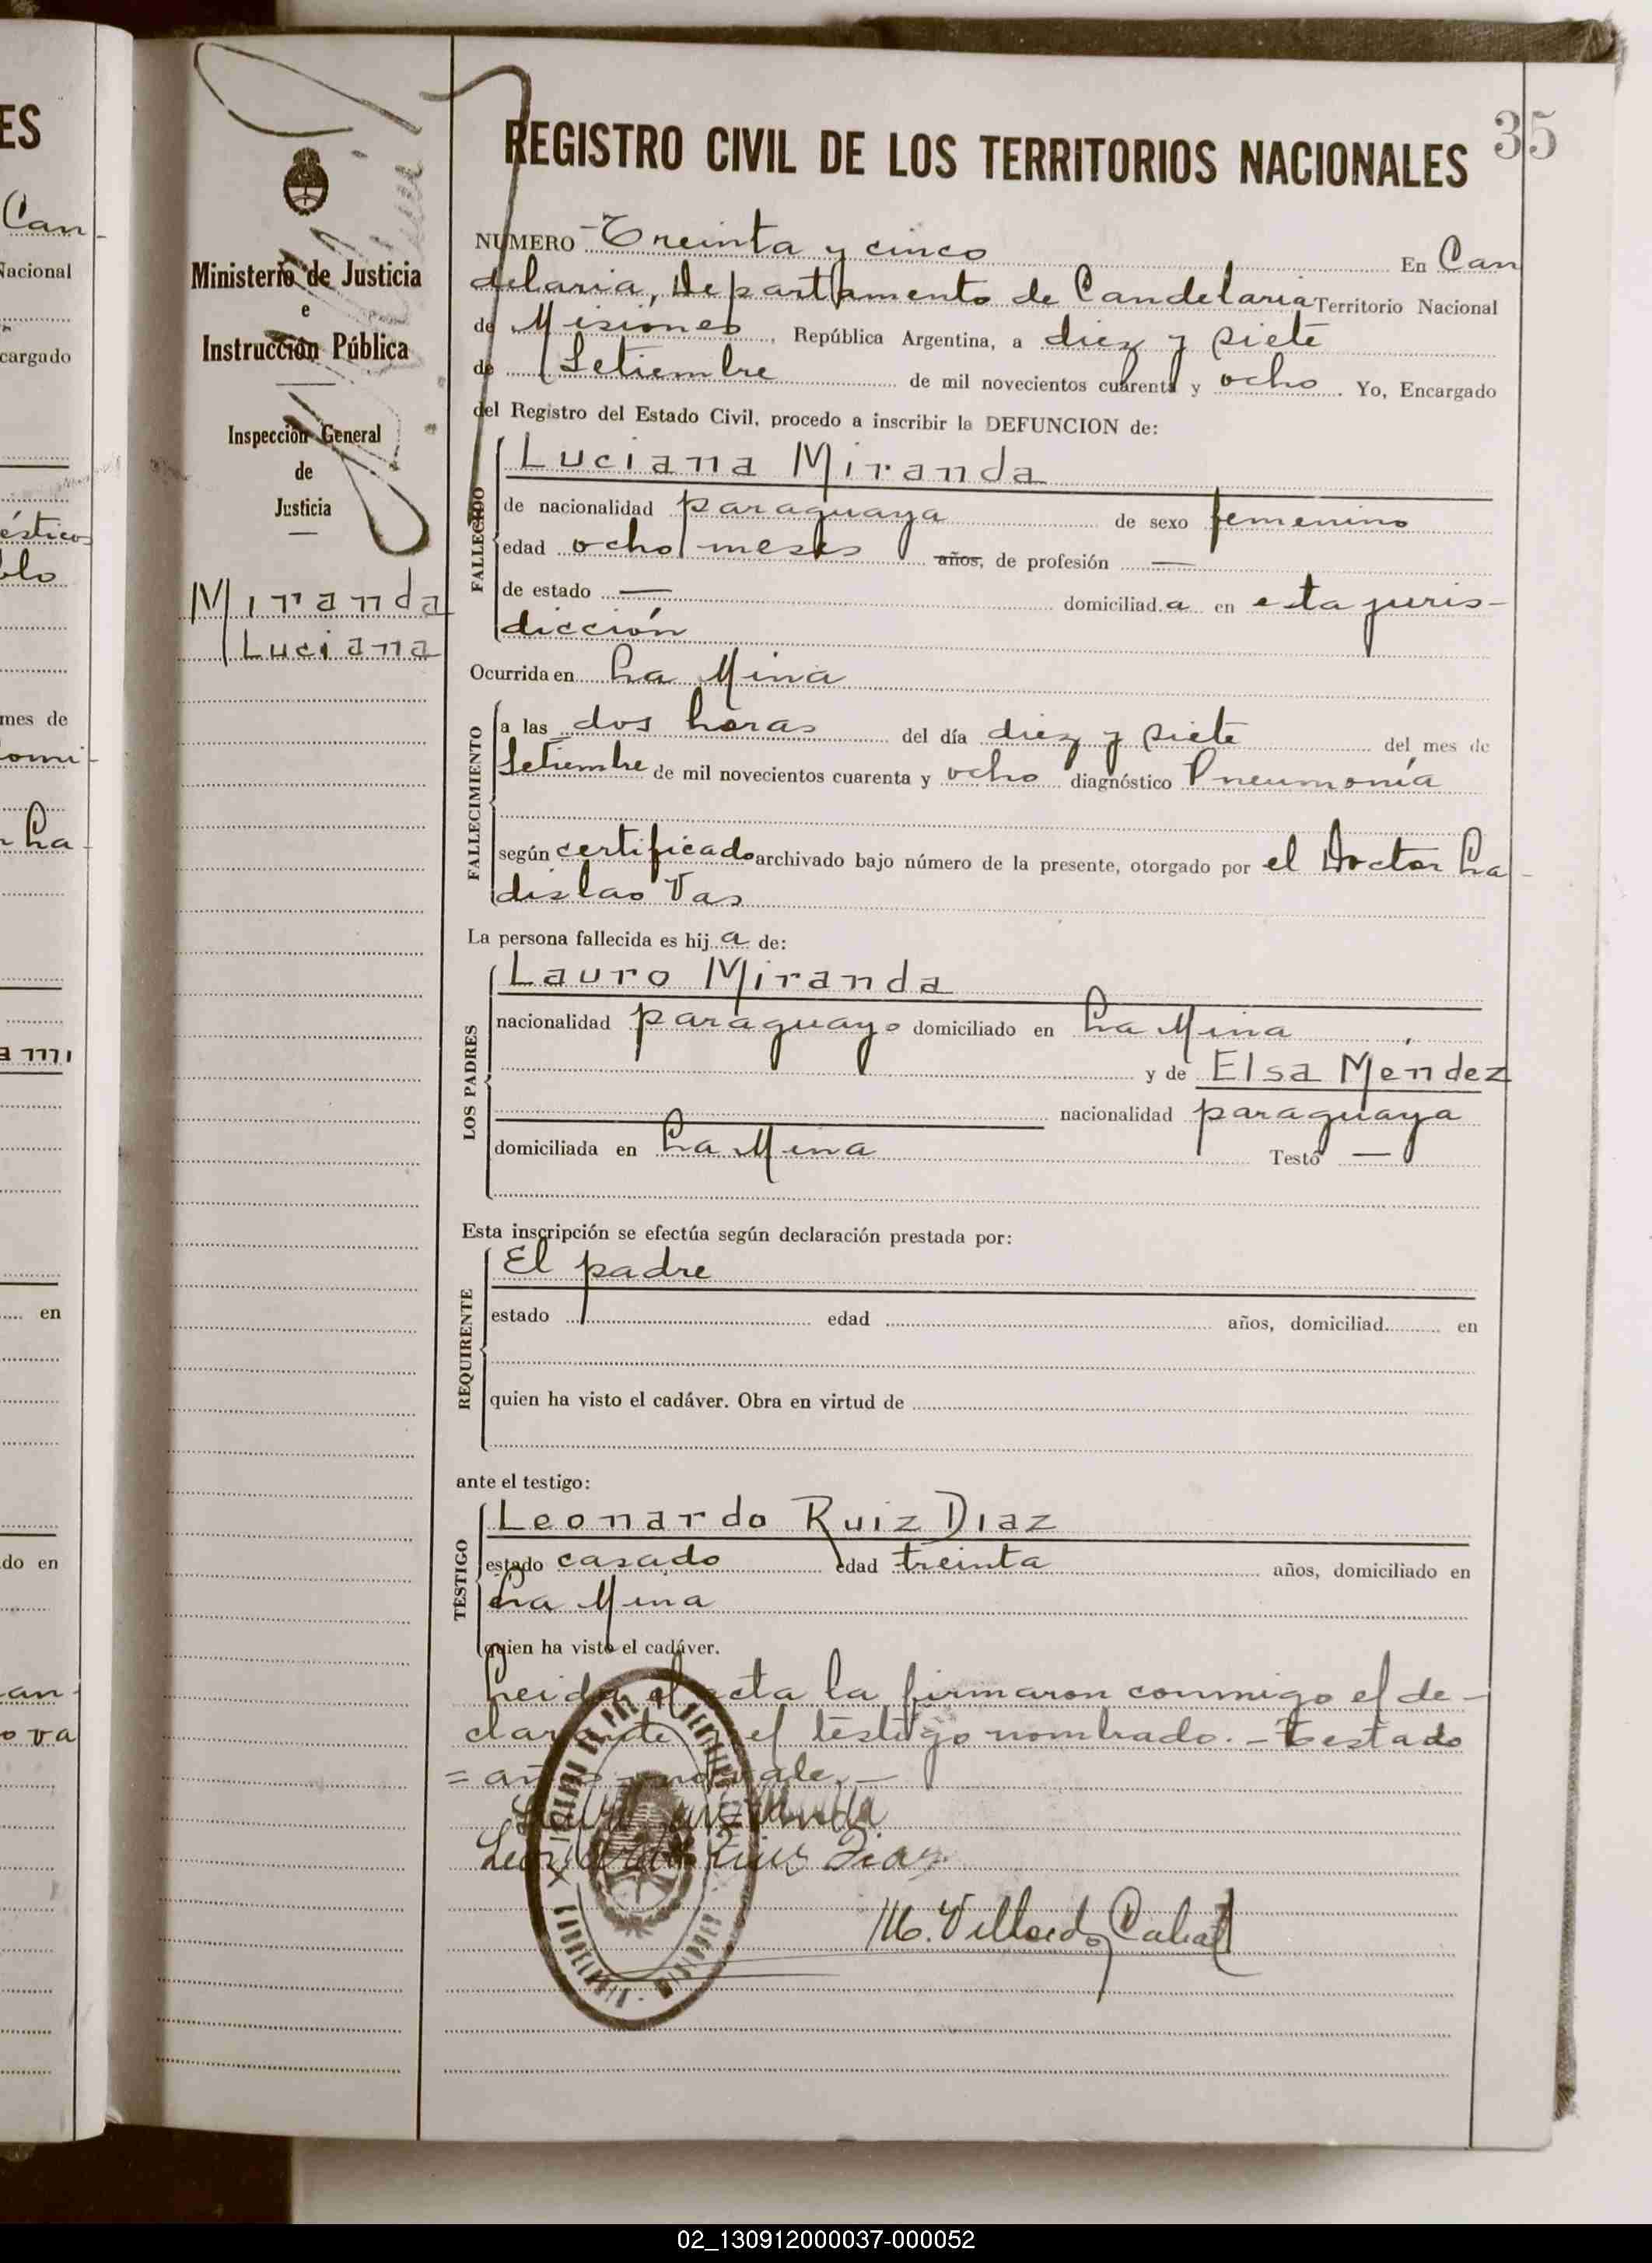 35
REGISTRO CIVIL DE LOS TERRITORIOS NACIONALES
Ministerio de Justicia
e
Instrucción Pública
Inspección General
de
Justicia
Miranda
Luciana
NUMERO Treinta y cinco En Can
delaria, Departamento de Candelaria Territorio Nacional
de Misiones, República Argentina, a diez y siete
de Setiembre de mil novecientos cuarenta y ocho. Yo, Encargado
del Registro del Estado Civil, procedo a inscribir la DEFUNCION de:
FALLECIDO
Luciana Miranda
de nacionalidad paraguaya de sexo femenino
edad ocho meses años, de profesión —
de estado — domiciliada en esta juris-
dicción
Ocurrida en La Mina
FALLECIMIENTO
a las dos horas del día diez y siete del mes de
Setiembre de mil novecientos cuarenta y ocho diagnóstico Pneumonía
según certificado archivado bajo número de la presente, otorgado por el Doctor La-
dislao Vas
La persona fallecida es hija de:
LOS PADRES
Lauro Miranda
nacionalidad paraguayo domiciliado en La Mina
y de Elsa Méndez
nacionalidad paraguaya
domiciliada en La Mina Testó —
Esta inscripción se efectúa según declaración prestada por:
REQUIRENTE
El padre
estado edad años, domiciliad en
quien ha visto el cadáver. Obra en virtud de
ante el testigo:
TESTIGO
Leonardo Ruiz Diaz
estado casado edad treinta años, domiciliado en
La Mina
quien ha visto el cadáver.
Leida el acta la firmaron conmigo el de-
clarante y el testigo nombrado. - Testado
= años = no vale. -
Leonardo Ruiz Diaz
ES
Can-
Nacional
cargado
ésticos
blo
mes de
omi-
La-
en
do en
an-
o va
02_130912000037-000052